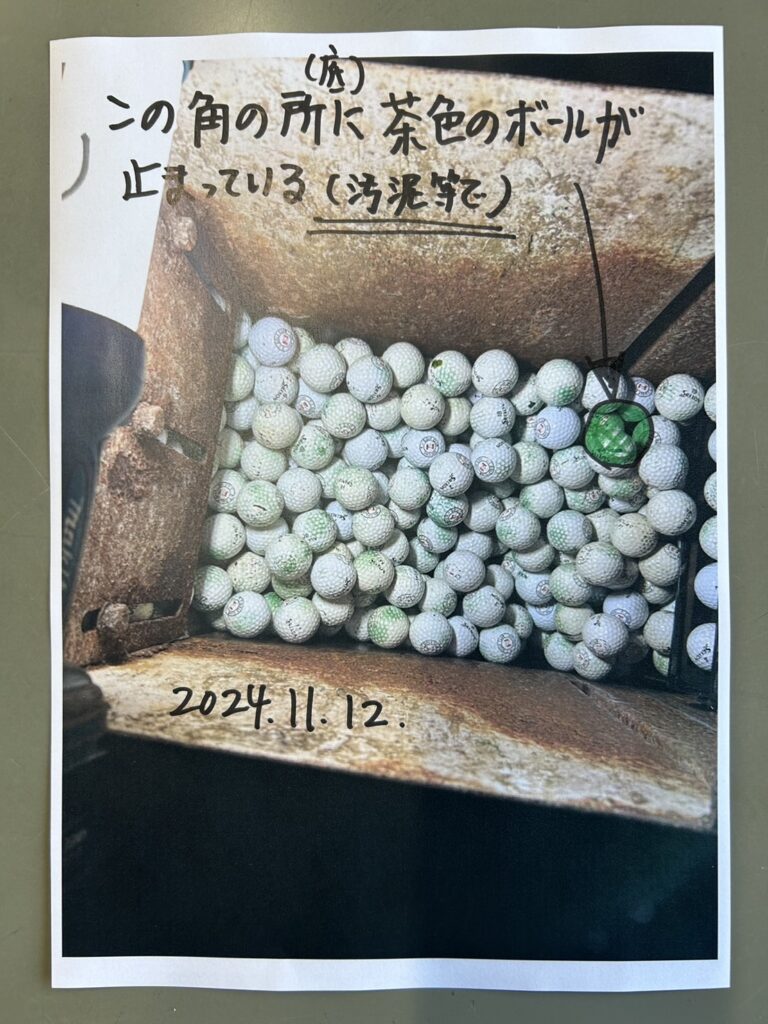 (底)
この角の所に茶色のボールが
止まっている(汚泥等で)
2024.11.12.